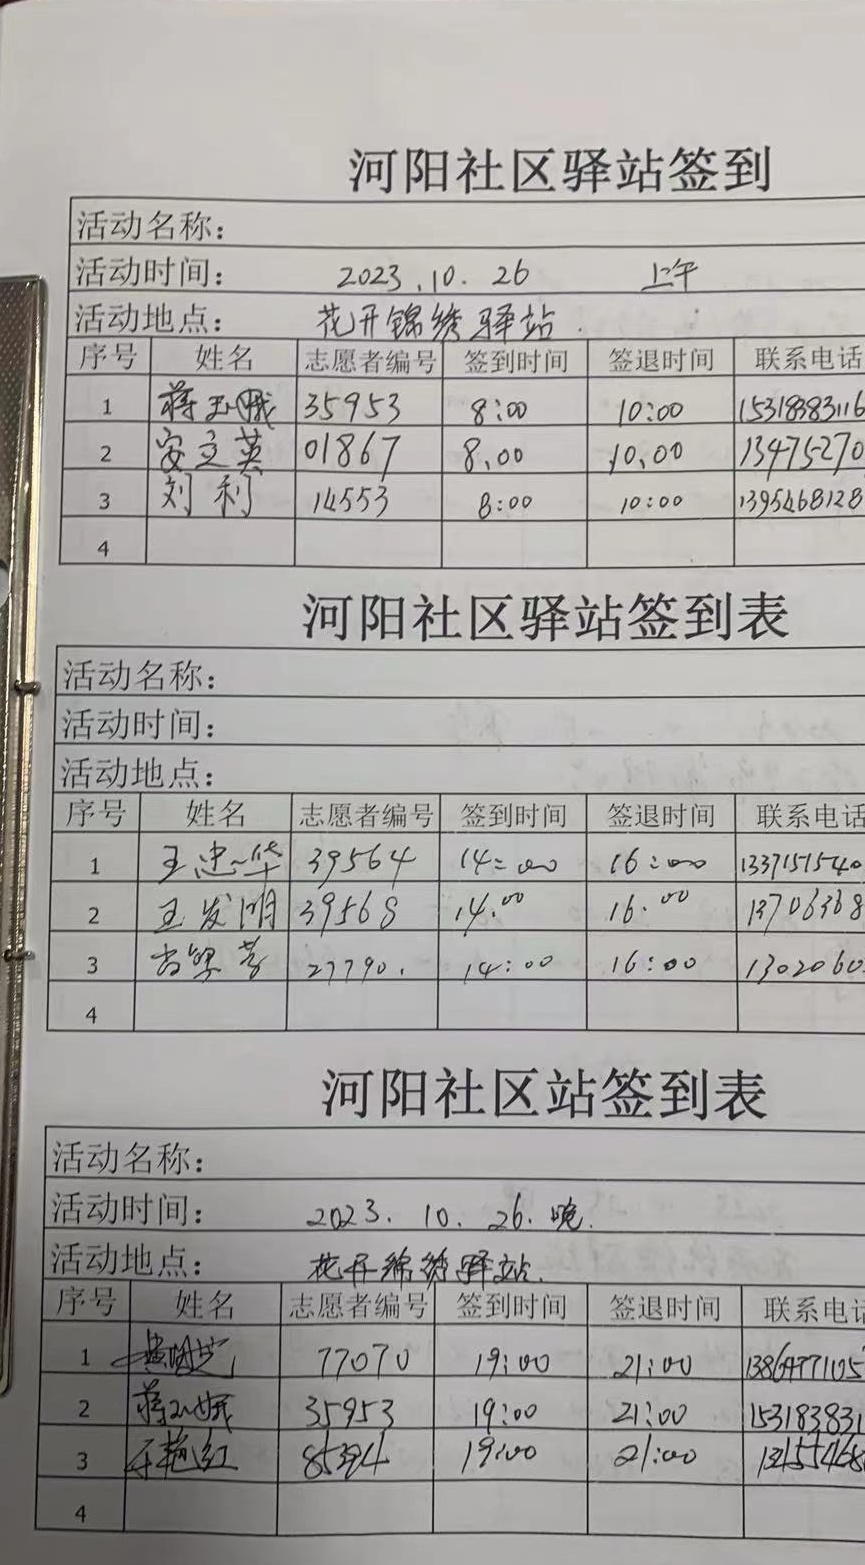 河阳社区驿站签到
活动名称：
活动时间： 2023.10.26 上午
活动地点： 花开锦绣驿站.
序号 姓名 志愿者编号 签到时间 签退时间 联系电话
1 蒋玉娥 35953 8:00 10:00 15318383116
2 安立英 01867 8.00 10.00 13475270
3 刘利 14553 8:00 10:00 1395468128
4
河阳社区驿站签到表
活动名称：
活动时间：
活动地点：
序号 姓名 志愿者编号 签到时间 签退时间 联系电话
1 王忠华 39564 14:00 16:00 1337151540
2 王发明 39568 14.00 16.00 13706368
3 27790. 14:00 16:00 1302060
4
河阳社区站签到表
活动名称：
活动时间： 2023.10.26.晚.
活动地点： 花开绵绣驿站.
序号 姓名 志愿者编号 签到时间 签退时间 联系电话
1 77070 19:00 21:00
2 蒋玉娥 35953 19:00 21:00 153183831
3 艳红 19:00 21:00
4